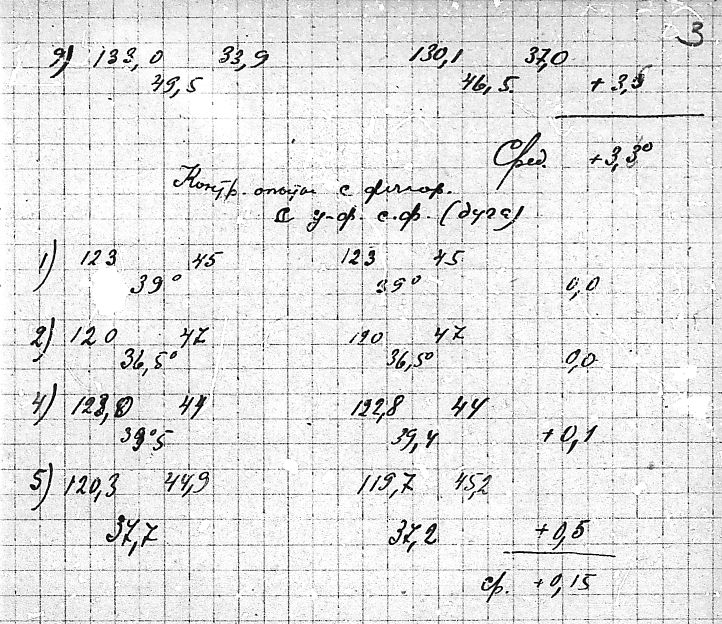 3
9) 133,0 33,9 130,1 37,0
49,5 46,5 + 3,3
Сред. + 3,3°
Контр. опыты с
С у-ф. с.ф. (дуга)
1) 123 45 123 45
39° 39° 0,0
2) 120 47 120 47
36,5° 36,5° 0,0
4) 123,0 44 122,8 44
39°5 39,4 + 0,1
5) 120,3 44,9 119,7 45,2
37,7 37,2 + 0,5
ср. + 0,15